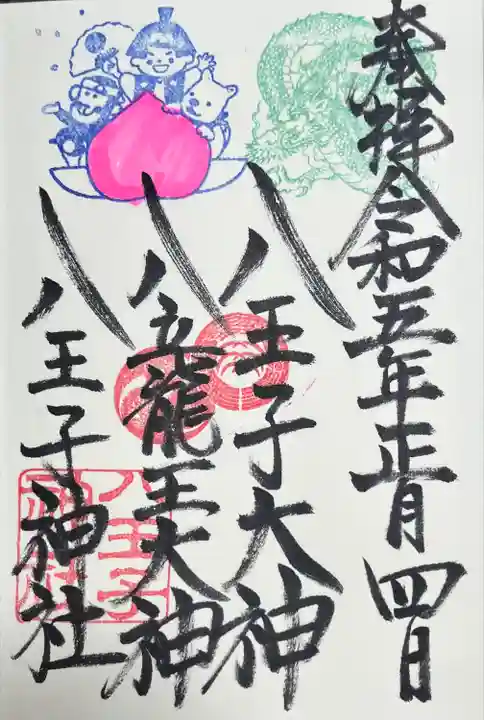 奉拝令和五年正月四日
八王子大神
八立龍王大神
八王子神社
八王子神社